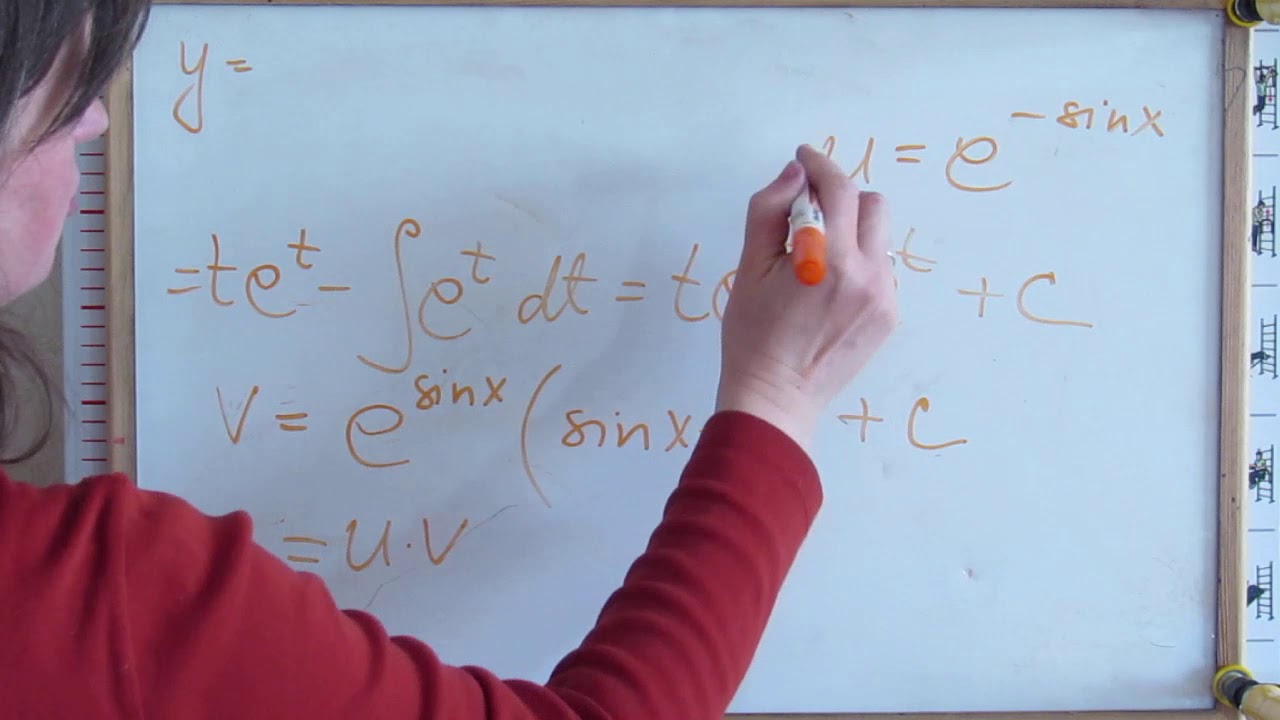 y =
u = e^{-sinx}
= te^t - ∫ e^t dt = t t + C
V = e^{sinx} (sinx + C
= u·v